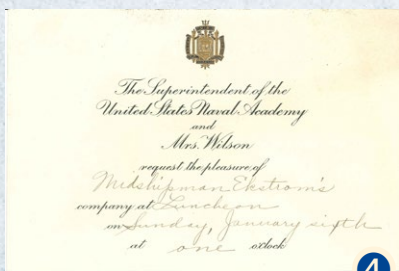 The Superintendent of the
United States Naval Academy
and
Mrs. Wilson
request the pleasure of
Midshipman Ekstrom's
company at Luncheon
on Sunday, January sixth
at one o'clock
4